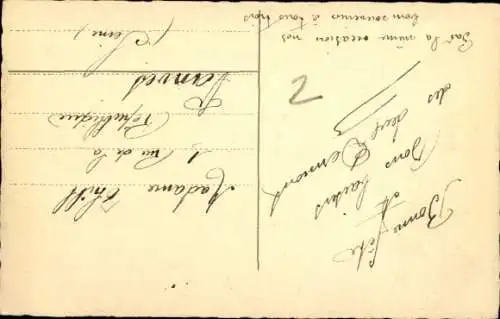 Bonne fête
et
Bons baisers
des deux Dermont
Par la même occasion nos
bons souvenirs à tous trois
Madame Thill
1 Rue de la
République
Vanves
(Seine)
2